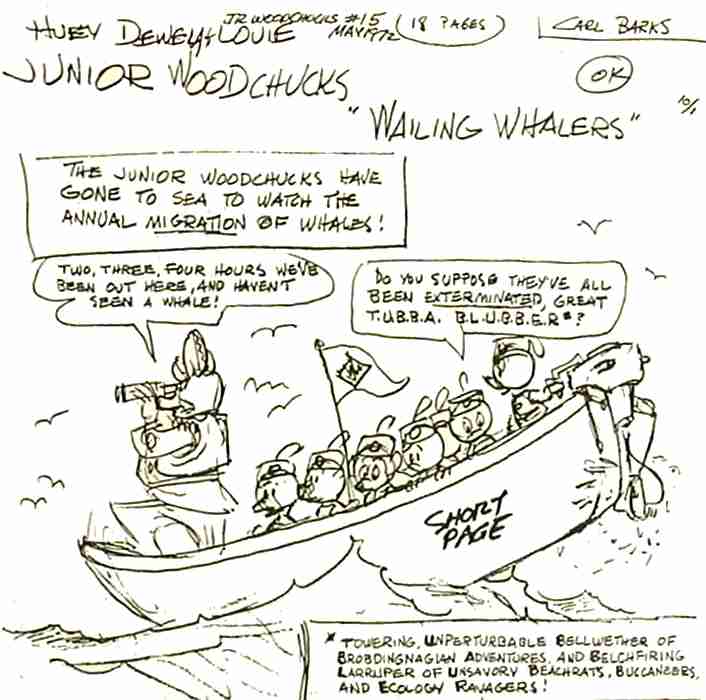 JR WOODCHUCKS #15
HUEY DEWEY & LOUIE MAY 1972 (18 PAGES) CARL BARKS
JUNIOR WOODCHUCKS OK
10/1
"WAILING WHALERS"
THE JUNIOR WOODCHUCKS HAVE
GONE TO SEA TO WATCH THE
ANNUAL MIGRATION OF WHALES!
TWO, THREE, FOUR HOURS WE'VE
BEEN OUT HERE, AND HAVEN'T
SEEN A WHALE!
DO YOU SUPPOSE THEY'VE ALL
BEEN EXTERMINATED, GREAT
T.U.B.B.A. B.L.U.B.B.E.R*?
SHORT
PAGE
* TOWERING, UNPERTURBABLE BELLWETHER OF
BROBDINGNAGIAN ADVENTURES, AND BELCHFIRING
LARRUPER OF UNSAVORY BEACHRATS, BUCCANEERS,
AND ECOLOGY RAVAGERS!